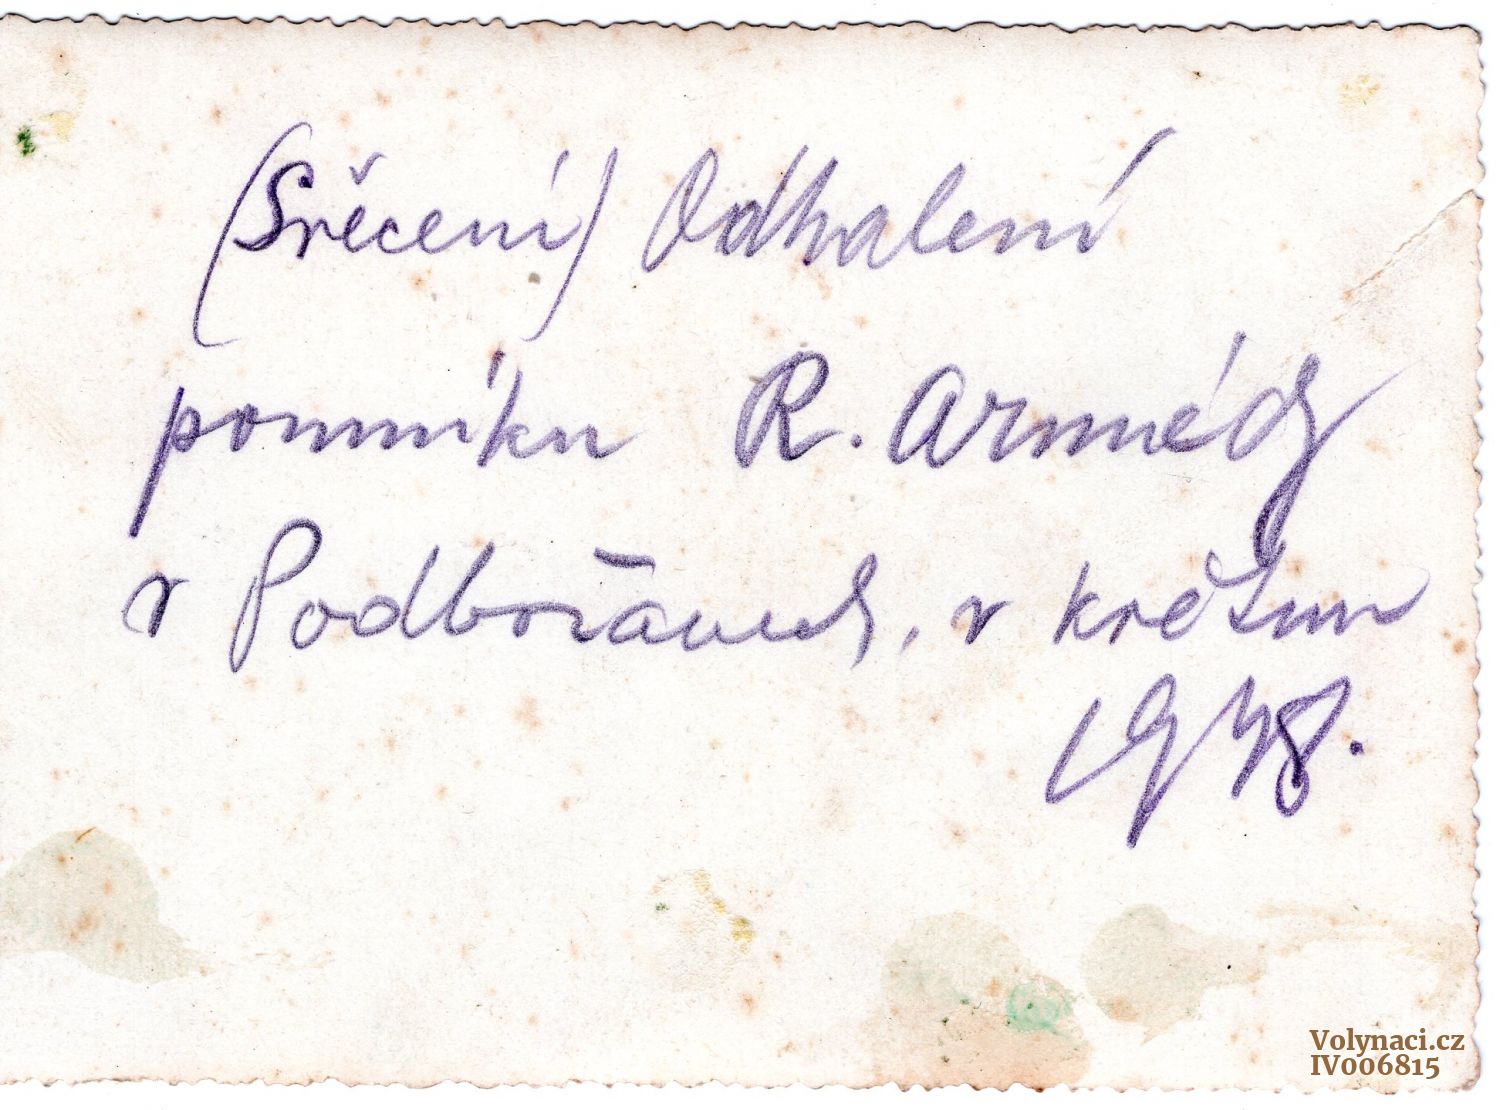 (Svěcení) Odhalení
pomníku R. Armády
v Podbořanech, v květnu
1948.
Volynaci.cz
IV006815